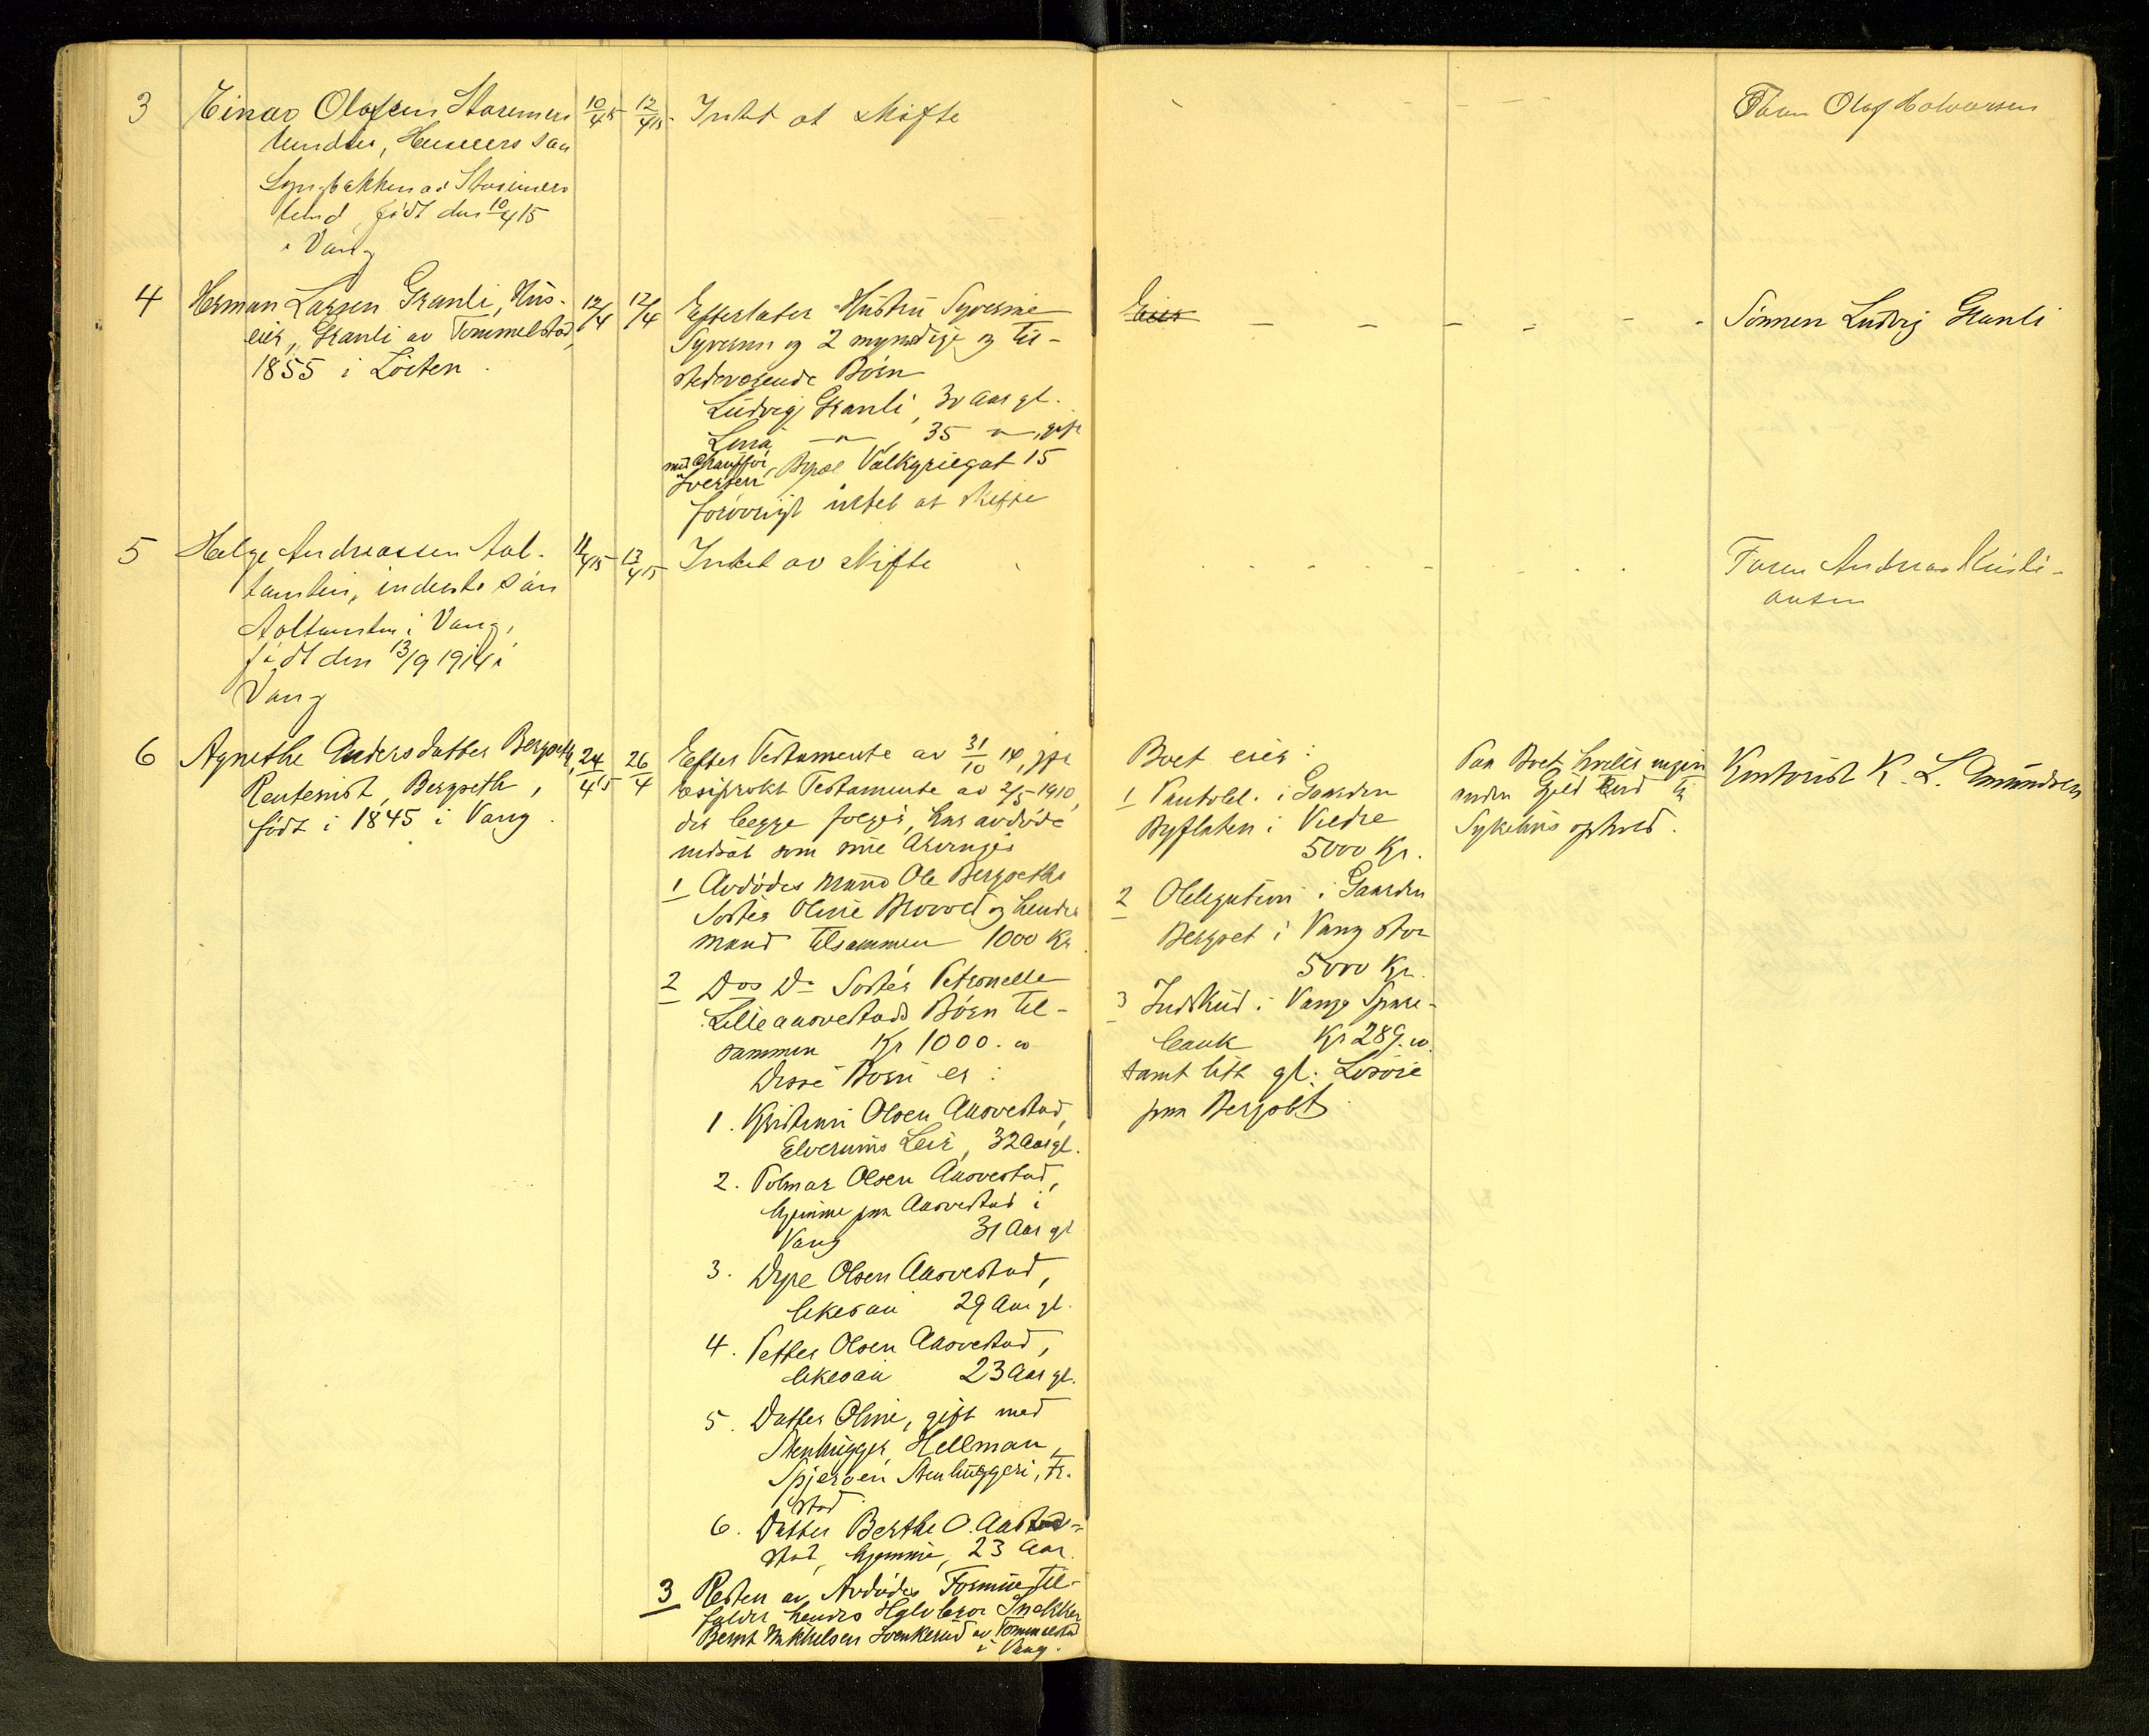 3 Einar Olafsen Storemers
lunden, Huseiers søn
Lyngbakken av Storemers
lund, født den 10/4 15
i Vang
10/4 15 12/4 15
Intet at skifte
Faren Olaf Halvorsen
4 Herman Larsen Granli, Hus-
eier, Granli av Tommelstad,
1855 i Löiten.
12/4 12/4
Efterlater Hustru Syverine
Syversen og 2 myndige og til-
stedeværende Börn
Ludvig Granli, 30 Aar gl.
Lina —"—, 35 —"—, gift
med Chauffør
Iversen, Bopæl Valkyriegat 15
forövrigt intet at skifte
Eier
Sönnen Ludvig Granli
5 Helge Andreassen Aal-
tansten, inderste søn
Aaltansten i Vang,
født den 13/9 1914 i
Vang
11/4 15 13/4 15
Intet av skifte
Faren Andreas Kristi-
ansen
6 Agnethe Andersdatter Bergseth,
Rentenist, Bergseth,
född i 1845 i Vang.
24/4 15 26/4
Efter Testamente av 31/10 14, jfr
resiprokt Testamente av 2/5 1910,
der begge følger, har avdöde
indsat som sine Arvinger
1 Avdödes Mand Ole Bergseths
Söster Oline Brovold og hendes
mand tilsammen 1000 Kr.
2 Dos Do Söster Petronelle
Lilleaarvestads Börn til-
sammen Kr 1000. 00
Disse Börn er:
1. Kristian Olsen Aasvestad,
Elverums Leir, 32 Aar gl.
2. Polmar Olsen Aasvestad,
hjemme paa Aasvestad i
Vang 31 Aar gl
3. Dyre Olsen Aasvestad,
likesaa 29 Aar gl.
4. Petter Olsen Aasvestad,
likesaa 23 Aar gl.
5. Datter Oline, gift med
Stenhugger Hellman,
Spjeröen Stenhuggeri, Fr.
stad.
6. Datter Berthe O. Aasve-
stad, hjemme, 23 Aar.
3 Resten av Avdödes Formue til-
falder hendes Halvbror Snekker
Bernt Mikkelsen Svenkerud av Tommelstad
i Vang.
Boet eier:
1 Pantobl. i Gaarden
Byflaten i Veldre
5000 Kr.
2 Obligation i Gaarden
Bergset i Vang stor
5000 Kr.
3 Indskud i Vangs Spare-
bank Kr 289. 00.
samt litt gl. Lösöre
paa Bergset.
Paa Boet hviler ingen
anden Gjeld end til
Sykehusophold.
Kontorist K. L. Amundsen